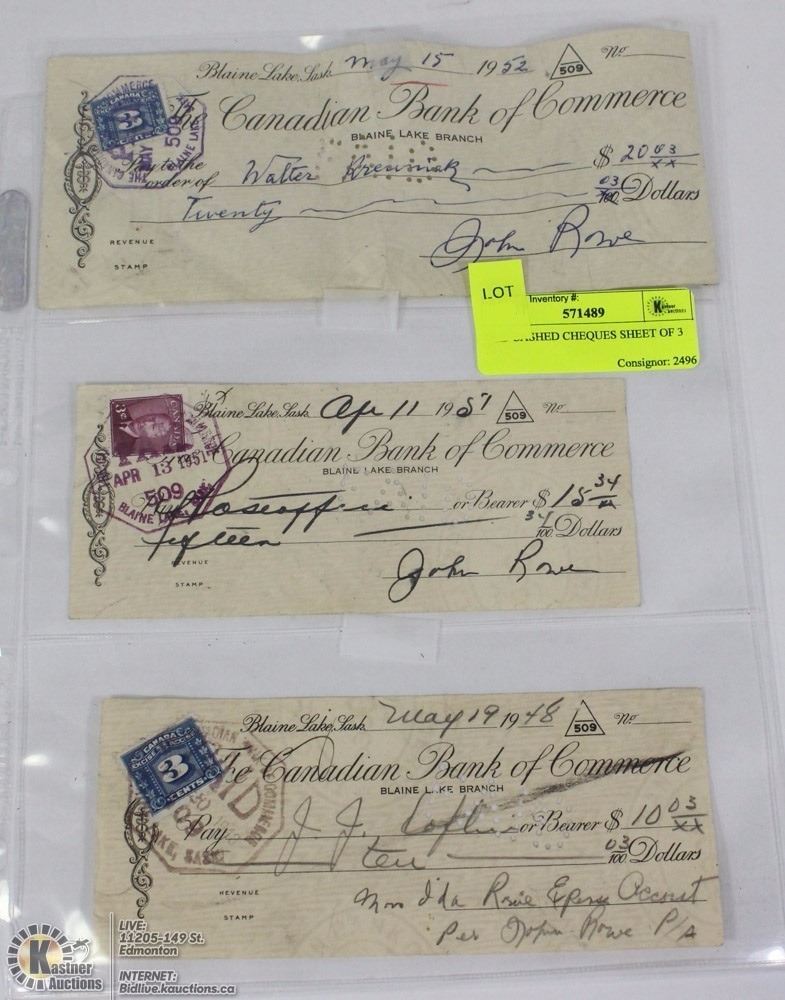 Blaine Lake, Sask. May 15 1952 509 No
CANADA
3
CENTS
The Canadian Bank of Commerce
BLAINE LAKE BRANCH
MAY
509
BLAINE LAKE
Pay to the
order of Walter $ 20 03/xx
Twenty 03/100 Dollars
REVENUE
STAMP
John Rowe
LOT
Inventory #:
571489
Kastner Auctions
CASHED CHEQUES SHEET OF 3
Consignor: 2496
Blaine Lake, Sask. Apr 11 1951 509 No
3¢ CANADA
Canadian Bank of Commerce
BLAINE LAKE BRANCH
APR 13 1951
509
BLAINE LAKE
Pay Postoffice or Bearer $ 15 34/xx
fifteen 34/100 Dollars
REVENUE
STAMP
John Rowe
Blaine Lake, Sask. May 19 1948 509 No
CANADA
EXCISE
3
CENTS
The Canadian Bank of Commerce
BLAINE LAKE BRANCH
Pay J. J. or Bearer $ 10 03/xx
ten 03/100 Dollars
REVENUE
STAMP
Mrs Ida Rowe Account
Per John Rowe P/A
Kastner
Auctions
LIVE:
11205-149 St.
Edmonton
INTERNET:
Bidlive.kauctions.ca